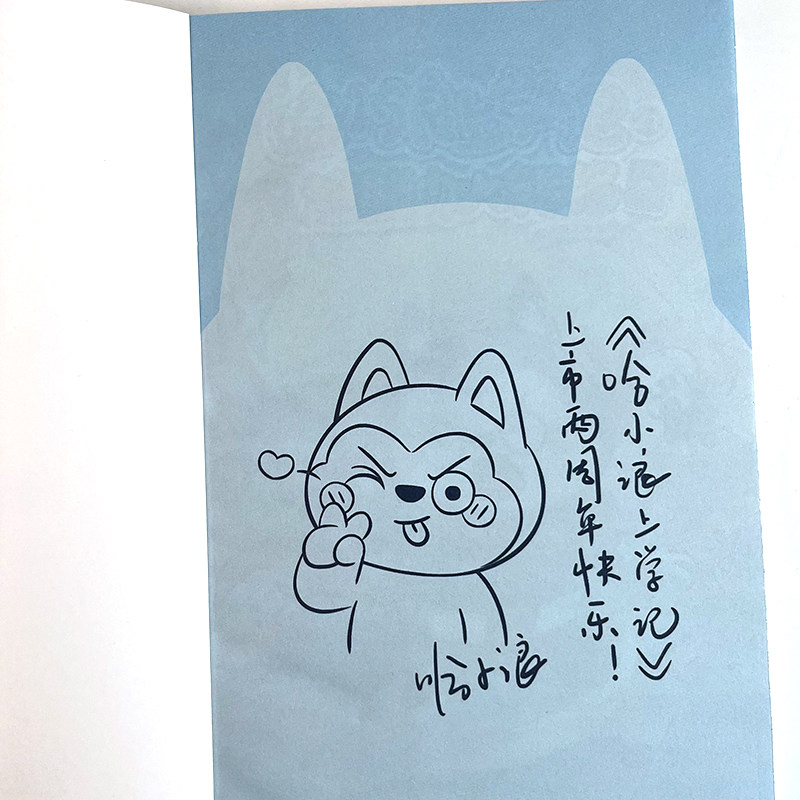 《哈小浪上学记》
上市两周年快乐！
哈小浪